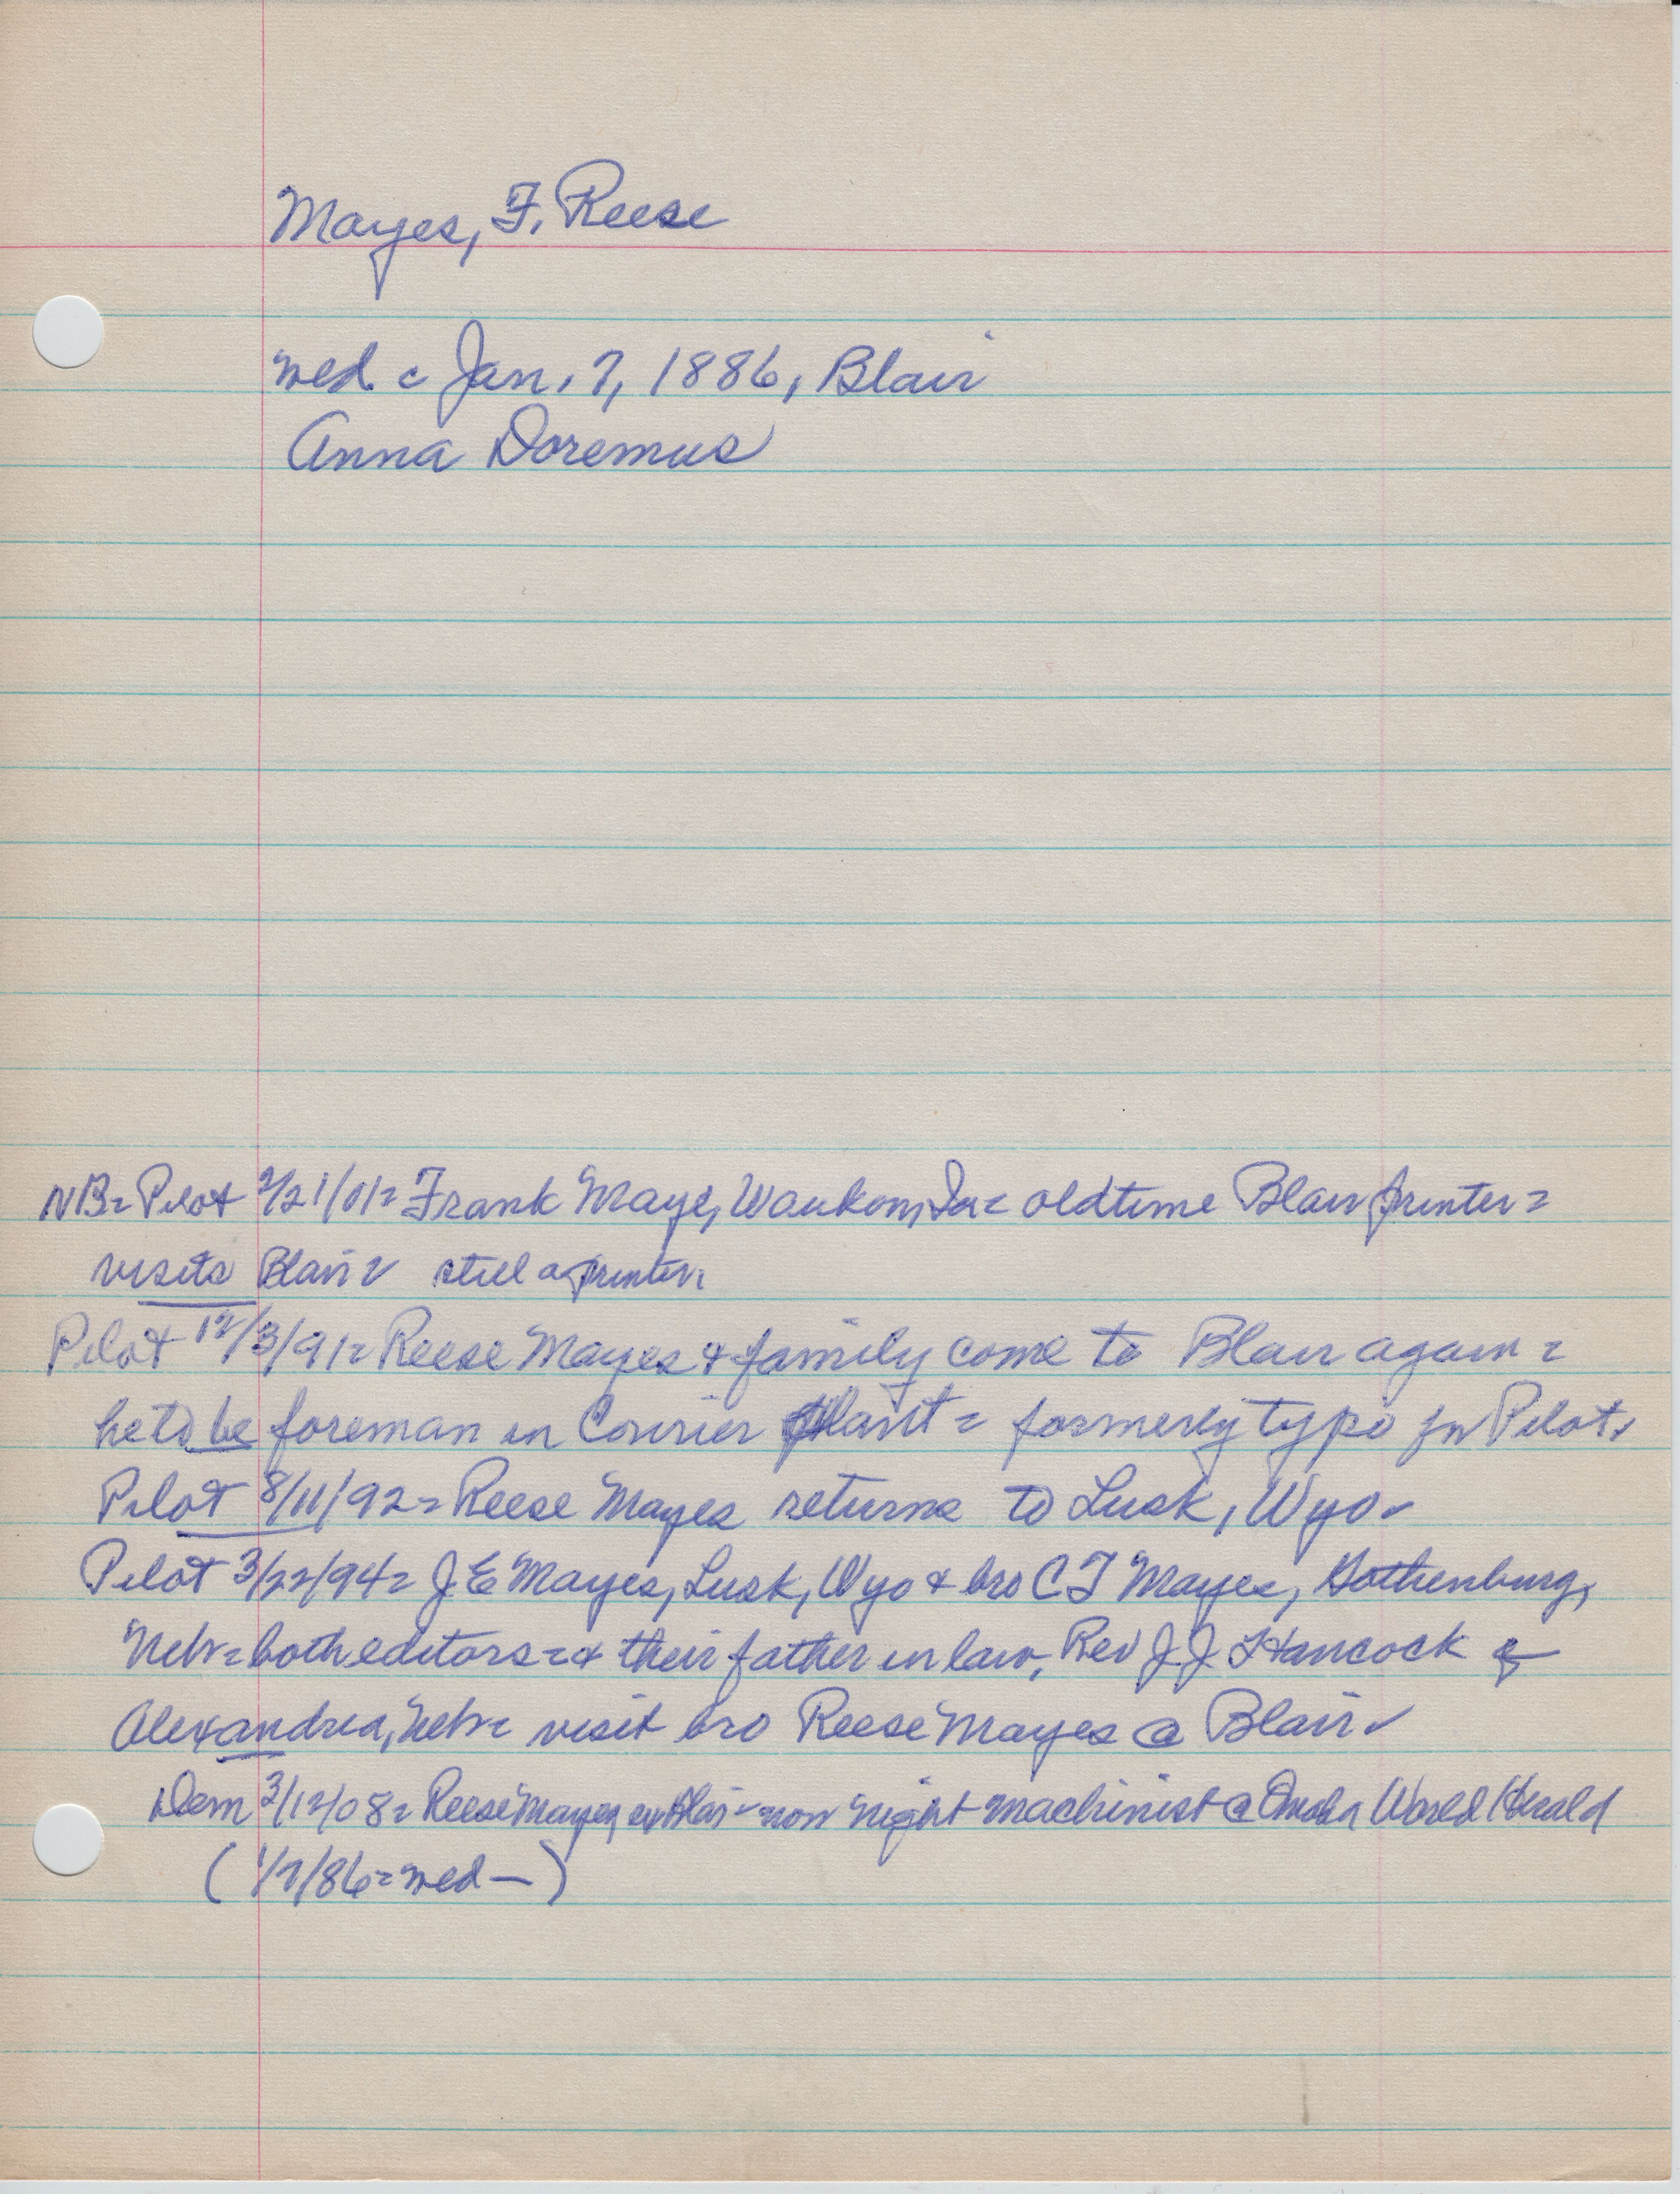 Mayes, F. Reese
wed c Jan. 7, 1886, Blair
Anna Doremus
NB= Pilot 2/21/01= Frank Maye, Waukon, Ia= oldtime Blair printer=
visits Blair= still a printer.
Pilot 12/3/91= Reese Mayes & family come to Blair again=
he to be foreman in Courier Plant= formerly typo for Pilot.
Pilot 8/11/92= Reese Mayes returns to Lusk, Wyo-
Pilot 3/22/94= J E Mayes, Lusk, Wyo & bro C F Mayes, Gothenburg,
Nebr= both editors= & their father in law, Rev J. J. Hancock of
Alexandria, Nebr= visit bro Reese Mayes @ Blair-
Dem 3/12/08= Reese Mayes ex Blair- now night machinist @ Omaha World Herald
(1/7/86= wed —)